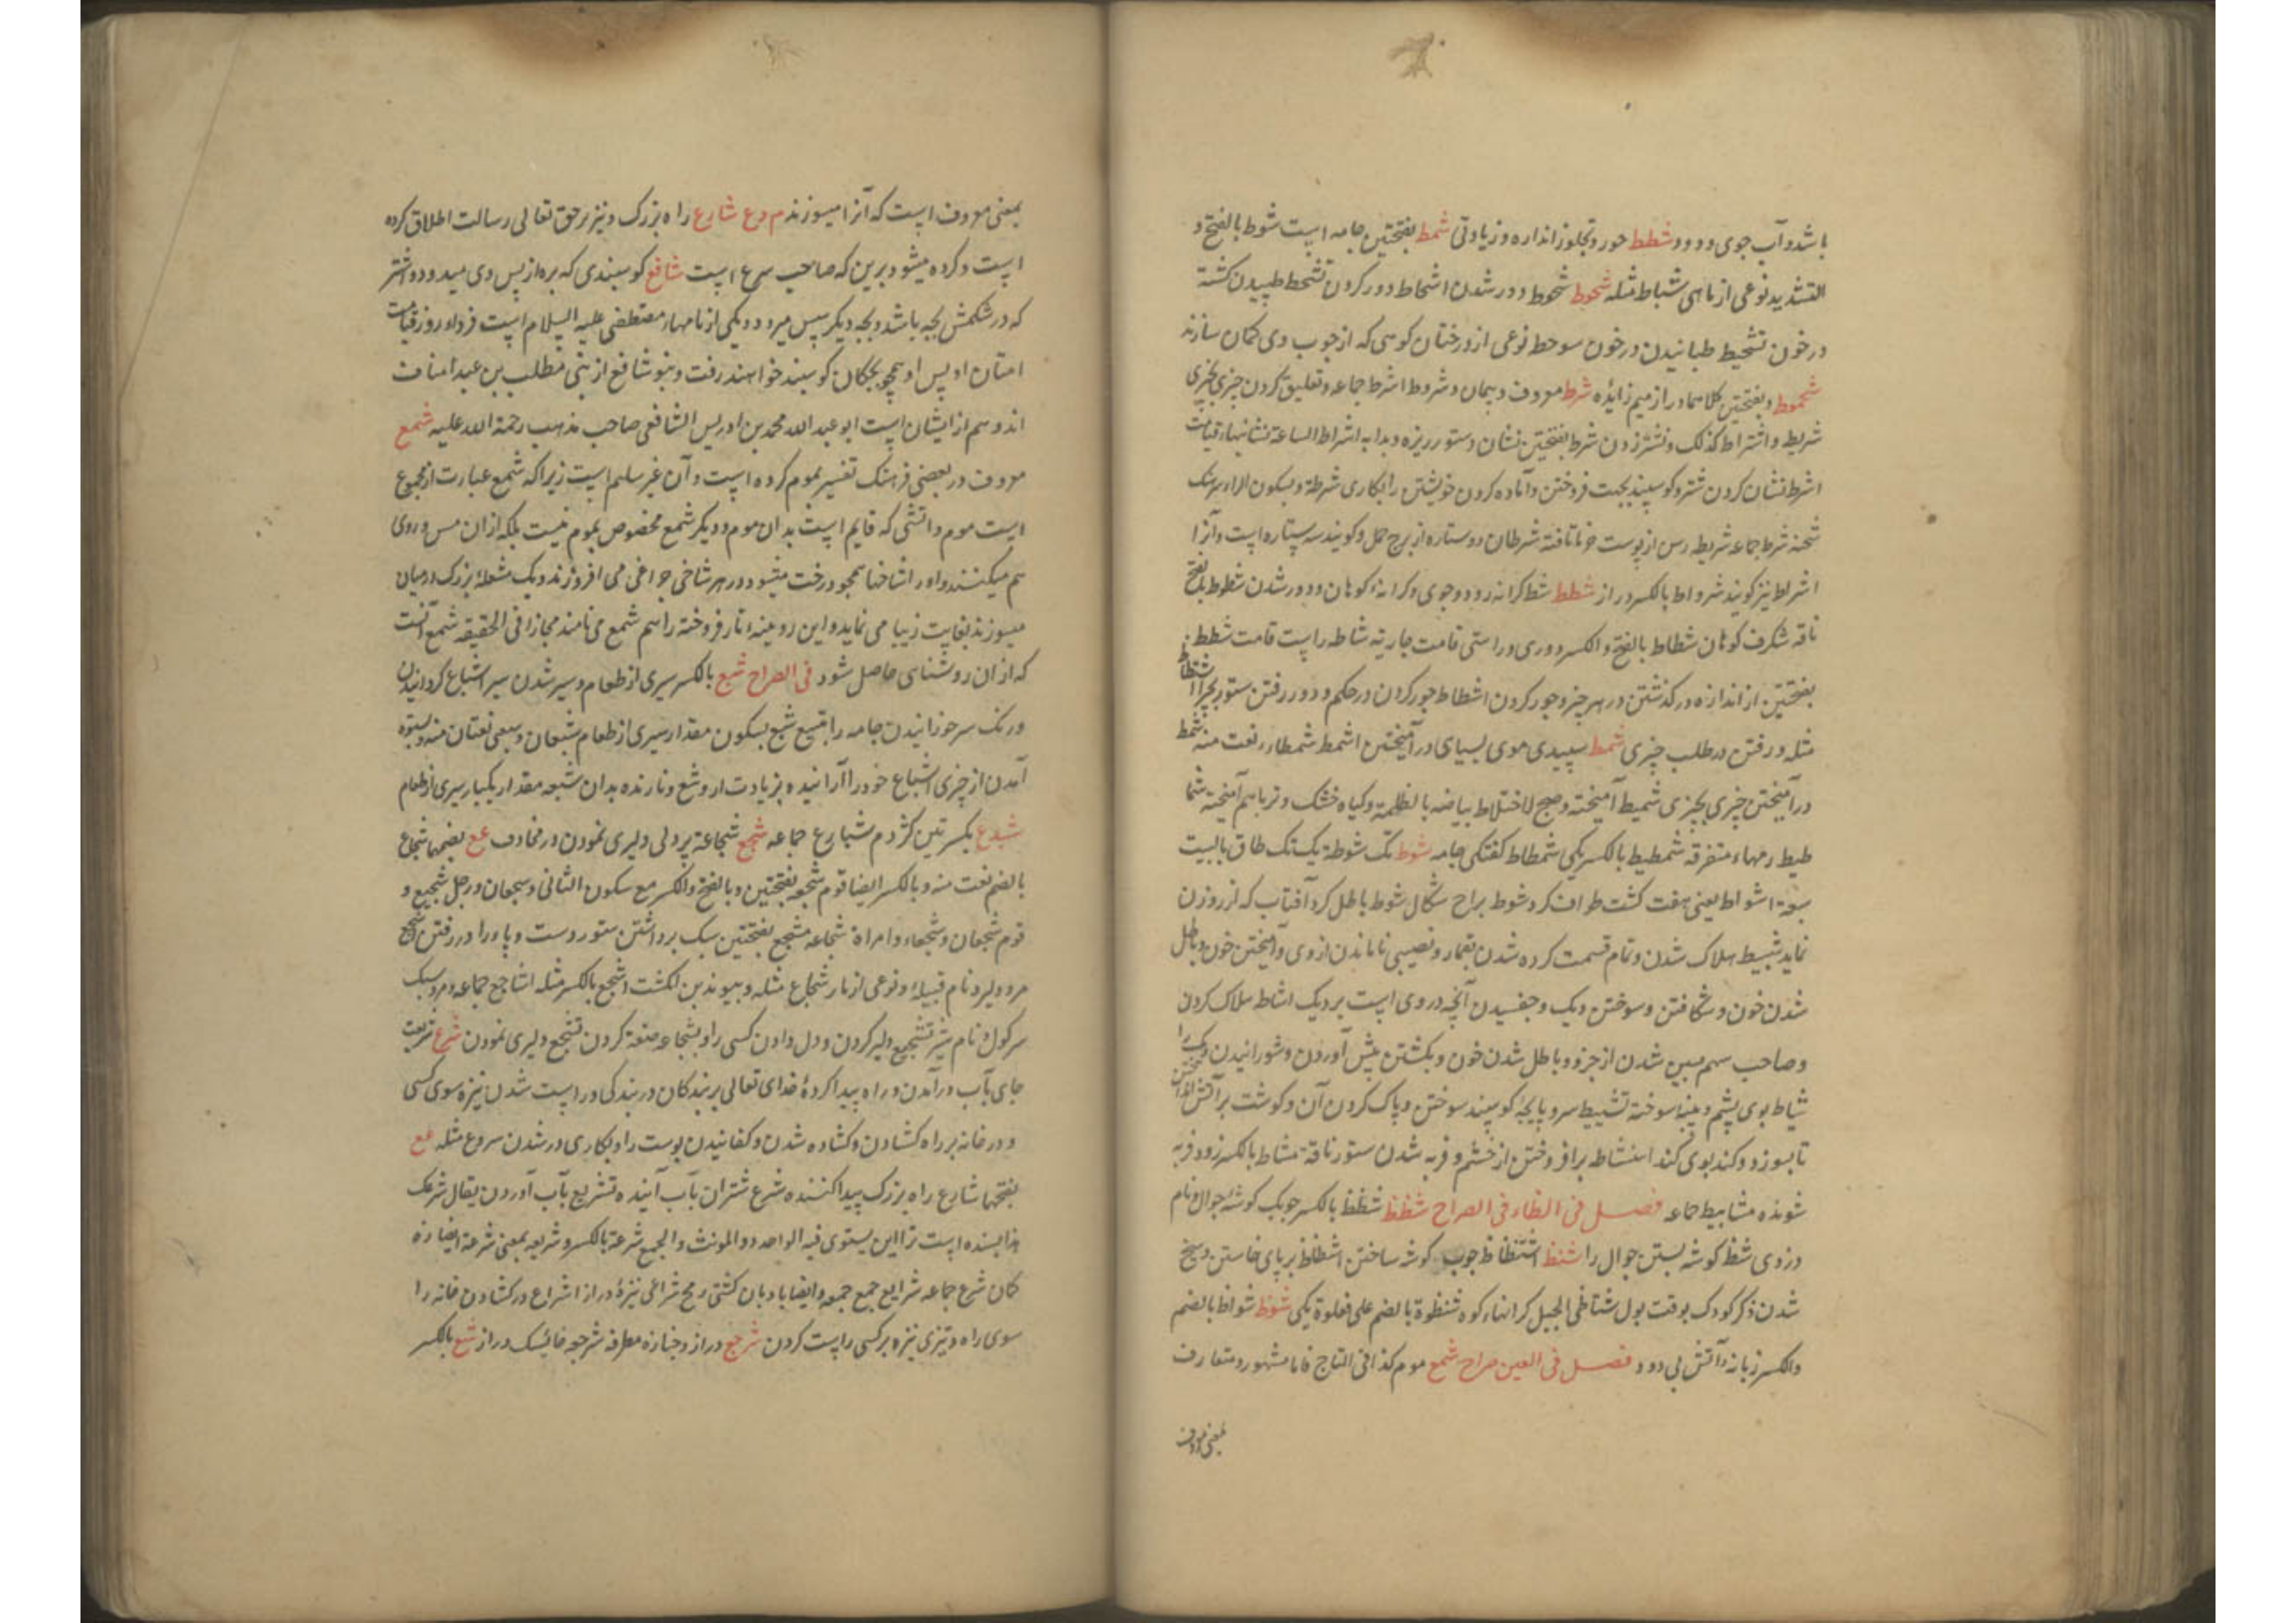 باشد و آب جوی و رود شطط جور و تجاوز اندازه و زیادتی شمط بفتحتین جامه است شبوط بالفتح و
التشدید نوعی از ماهی شباط مثله شحوط شحوط دور شدن اشحاط دور کردن تشحط طپیدن کشته
در خون تشحیط طپانیدن در خون شوحط نوعی از درختان کوهی که از چوب وی کمان سازند
شمحوط و بفتحتین کلاهما دراز میم زایده شرط معروف و پیمان و شروط اشرط جماعه و تعلیق کردن چیزی بچیزی
شریط و اشتراط کذلک و نشتر زدن شرط بفتحتین نشان و ستور ریزه و بدایه اشراط الساعة نشانیهاء قیامت
اشراط نشان کردن شتر و کوسپند بجهت فروختن و آماده کردن خویشتن را بکاری شرطة و بسکون الراء سرهنک
شحنه شرط جماعه شریط رسن از پوست خرما تافته شرطان دو ستاره از برج حمل و کویند سه ستاره است و آنرا
اشراط نیز کویند شرواط بالکسر دراز شطط شط کرانه رود و جوی و کرانهٔ کوهان و دور شدن شطوط بالفتح
ناقه شکرف کوهان شطاط بالفتح و الکسر دوری و راستی قامت جاریه شاطه راست قامت شطط
بفتحتین از اندازه درکذشتن در هر چیز و جور کردن اشطاط جور کردن در حکم و دور رفتن ستور بچرا اشتطاط
مثله و رفتن در طلب چیزی شمط سپیدی موی بسیاهی درآمیختن اشمط شمطاء نعت منه شمط
درآمیختن چیزی بچیزی شمیط آمیخته و صبح لاختلاط بیاضه بالظلمة و کیاه خشک و تر باهم آمیخته شما
طیط رمهاء متفرقه شمطیط بالکسر یکی شمطاط کفتکی جامه شوط تک شوطة یک تک طاق بالبیت
سبعة اشواط یعنی هفت کشت طواف کرد شوط براح شکال شوط باطل کرد آفتاب که از روزن
نماید شیط هلاک شدن و تمام قسمت کرده شدن بقمار و نصیبی ناماندن از وی و آمیختن خون و باطل
شدن خون و شکافتن و سوختن دیک و چفسیدن آنچه در وی است بر دیک اشاط هلاک کردن
و صاحب سهم مبین شدن از جزو و باطل شدن خون و بکشتن پیش آوردن و شورانیدن دیک را
شیاط بوی پشم و پنبه سوخته تشییط سر و پایچهٔ کوسپند سوختن و پاک کردن آن و کوشت بر آتش انداختن
تا بسوزد و کند بوی کند استشاط برافروختن از خشم و فربه شدن ستور ناقة مشیاط بالکسر زود فربه
شونده مشاییط جماعه فصل فی الظاء فی الصراح شظظ شظظ بالکسر چوبک کوشهٔ جوال و نام
دزدی شظ کوشه بستن جوال را شظظ اشظاظ چوب کوشه ساختن اشظاظ بر پای خاستن و سیخ
شدن ذکر کودک بوقت بول شناظی الجبل کرانهاء کوه شنظوة بالضم علی فعلوة یکی شوظ شواظ بالضم
والکسر زبانه آتش بی دود فصل فی العین صراح شمع موم کذا فی التاج فاما مشهور و متعارف
بمعنی معروف
بمعنی معروف است که آنرا میسوزند م وع شارع راه بزرک و نیز بر حق تعالی رسالت اطلاق کرده
است و کرده میشود برین که صاحب شرع است شافع کوسپندی که بره از پس وی میدود و اشتر
که در شکمش بچه باشد و بچه دیکر سپس میرود و یکی از نامهاء مصطفی علیه السلام است فردا و روز قیامت
امتان او پس او همچو بچکان کوسپند خواهند رفت و بنو شافع از بنی مطلب بن عبد مناف
اند و هم از ایشان است ابو عبد الله محمد بن ادریس الشافعی صاحب مذهب رحمة الله علیه شمع
معروف در بعضی فرهنک تفسیر بموم کرده است و آن غیر سلم است زیرا که شمع عبارت از مجموع
است موم و آتشی که قایم است بدان موم و دیکر شمع مخصوص بموم نیست بلکه از ان مس و روی
هم میکنند و او را شاخها همچو درخت میشود و در هر شاخی چراغی می افروزند و یک مشعلهٔ بزرک درمیان
میسوزند بغایت زیبا می نماید و این روعینه و نار فروخته را هم شمع می نامند مجازا فی الحقیقه شمع آنست
که از ان روشنای حاصل شود فی الصراح شبع بالکسر سیری از طعام و سیر شدن سیر اشباع کردانیدن
و رنک سرخورانیدن جامه را تشبیع شبع بسکون مقدار سیری از طعام شبعان و شبعی نعتان منه و بستوه
آمدن از چیزی اشباع خود را آراینده بزیادت از وشع و نازنده بدان شبعه مقدار یکبار سیری از طعام
شبدع بکسرتین کژدم شبادع جماعه شجع شجاعة پردلی دلیری نمودن در مخاوف عع بضمها شجاع
بالضم نعت منه و بالکسر ایضا قوم شجعة بفتحتین و بالفتح و الکسر مع سکون الثانی و شجعان و رجل شجیع و
قوم شجعان و شجعاء و امراة شجاعه مشجع بفتحتین سبک برداشتن ستور دست و پا را در رفتن شجیع
مرد دلیر و نام قبیله و نوعی از مار شجاع مثله و پیوند بن انکشت اشجع بالکسر مثله اشاجع جماعه و مرد سبک
سر کول و نام شیر تشجیع دلیر کردن و دل دادن کسی را و بشجاعه صفة کردن تشجع دلیری نمودن شرع شریعت
جای بآب درآمدن و راه پیدا کردهٔ خدای تعالی بر بندکان در بندکی و راست شدن نیزه سوی کسی
و در خانه بر راه کشادن و کشاده شدن و کفانیدن پوست را و بکاری در شدن شروع مثله عع
بفتحها شارع راه بزرک پیدا کننده شرع شتران بآب آینده تشریع بآب آوردن یقال شرعک
هذا بسنده است ترا این یستوی فیه الواحد و المونث و الجمع شرعة بالکسر و شریعه بمعنی شرعة ایضا زه
کمان شرع جماعه شرایع جمع جمعه و ایضا بادبان کشتی رمح شراعی نیزهٔ دراز اشراع درکشادن خانه را
سوی راه و تیزی نیزه بر کسی راست کردن شرجع دراز و جنازه مطرقه شرجعه خایسک دراز شسع بالکسر